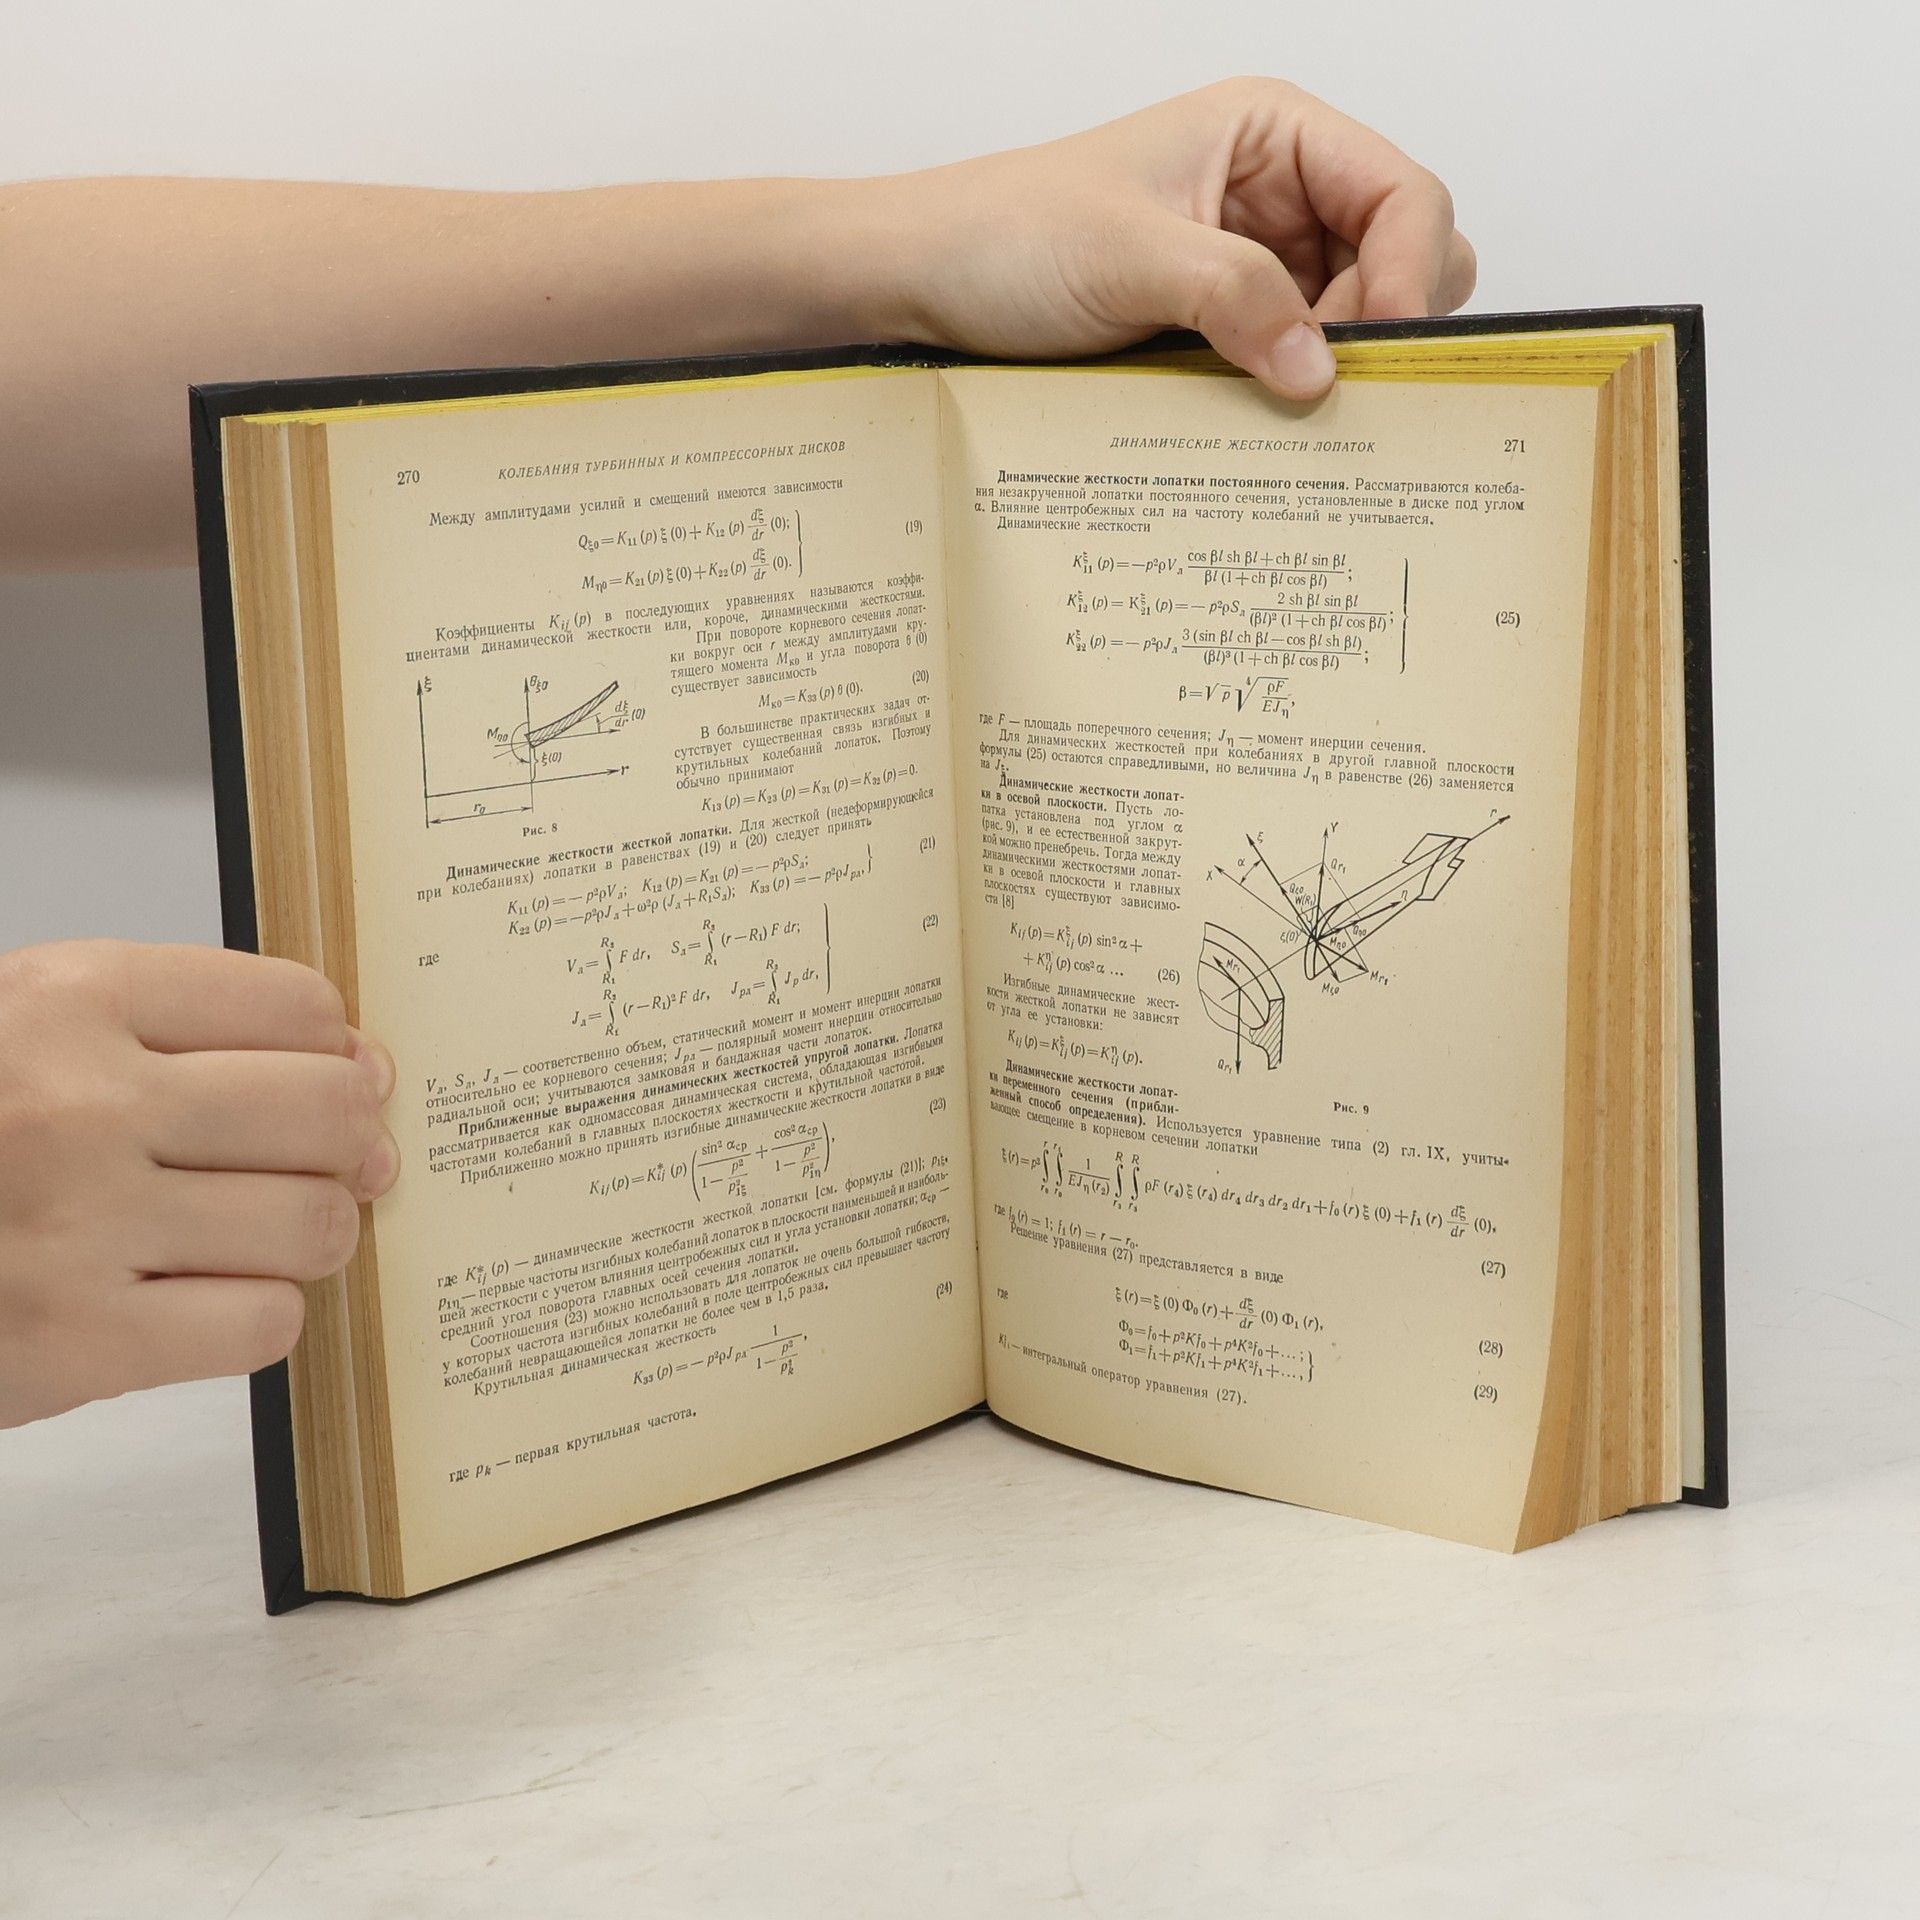 270
КОЛЕБАНИЯ ТУРБИННЫХ И КОМПРЕССОРНЫХ ДИСКОВ
Между амплитудами усилий и смещений имеются зависимости
Qξ0 = K11 (p) ξ (0) + K12 (p) dξ/dr (0);
Mη0 = K21 (p) ξ (0) + K22 (p) dξ/dr (0).
(19)
Коэффициенты Kij (p) в последующих уравнениях называются коэффи-
циентами динамической жесткости или, короче, динамическими жесткостями.
При повороте корневого сечения лопат-
ки вокруг оси r между амплитудами кру-
тящего момента Mк0 и угла поворота θ (0)
существует зависимость
Mк0 = K33 (p) θ (0). (20)
В большинстве практических задач от-
сутствует существенная связь изгибных и
крутильных колебаний лопаток. Поэтому
обычно принимают
K13 (p) = K23 (p) = K31 (p) = K32 (p) = 0.
ξ
Mη0
dξ/dr (0)
ξ(0)
r
r0
Рис. 8
Динамические жесткости жесткой лопатки. Для жесткой (недеформирующейся
при колебаниях) лопатки в равенствах (19) и (20) следует принять
K11 (p) = — p²ρVл; K12 (p) = K21 (p) = — p²ρSл;
K22 (p) = —p²ρJл + ω²ρ (Jл + R1Sл); K33 (p) = — p²ρJрл,
(21)
где
Vл = ∫ R1 R2 F dr, Sл = ∫ R1 R2 (r — R1) F dr;
Jл = ∫ R1 R2 (r — R1)² F dr, Jрл = ∫ R1 R2 Jp dr,
(22)
Vл, Sл, Jл — соответственно объем, статический момент и момент инерции лопатки
относительно ее корневого сечения; Jрл — полярный момент инерции относительно
радиальной оси; учитываются замковая и бандажная части лопаток.
Приближенные выражения динамических жесткостей упругой лопатки. Лопатка
рассматривается как одномассовая динамическая система, обладающая изгибными
частотами колебаний в главных плоскостях жесткости и крутильной частотой.
Приближенно можно принять изгибные динамические жесткости лопатки в виде
Kij (p) = K*ij (p) (sin² αср / (1 — p²/p²1ξ) + cos² αср / (1 — p²/p²1η)),
(23)
где K*ij (p) — динамические жесткости жесткой лопатки [см. формулы (21)]; p1ξ,
p1η — первые частоты изгибных колебаний лопаток в плоскости наименьшей и наиболь-
шей жесткости с учетом влияния центробежных сил и угла установки лопатки; αср —
средний угол поворота главных осей сечения лопатки.
Соотношения (23) можно использовать для лопаток не очень большой гибкости,
у которых частота изгибных колебаний в поле центробежных сил превышает частоту
колебаний невращающейся лопатки не более чем в 1,5 раза.
Крутильная динамическая жесткость
K33 (p) = — p²ρJрл 1 / (1 — p²/p²k),
(24)
где pk — первая крутильная частота.
ДИНАМИЧЕСКИЕ ЖЕСТКОСТИ ЛОПАТОК
271
Динамические жесткости лопатки постоянного сечения. Рассматриваются колеба-
ния незакрученной лопатки постоянного сечения, установленные в диске под углом
α. Влияние центробежных сил на частоту колебаний не учитывается.
Динамические жесткости
Kξ11 (p) = —p²ρVл (cos βl sh βl + ch βl sin βl) / (βl (1 + ch βl cos βl));
Kξ12 (p) = Kξ21 (p) = — p²ρSл 2 sh βl sin βl / ((βl)² (1 + ch βl cos βl));
Kξ22 (p) = — p²ρJл 3 (sin βl ch βl — cos βl sh βl) / ((βl)³ (1 + ch βl cos βl));
(25)
β = √p ⁴√(ρF / EJη),
где F — площадь поперечного сечения; Jη — момент инерции сечения.
Для динамических жесткостей при колебаниях в другой главной плоскости
формулы (25) остаются справедливыми, но величина Jη в равенстве (26) заменяется
на Jξ.
Динамические жесткости лопат-
ки в осевой плоскости. Пусть ло-
патка установлена под углом α
(рис. 9), и ее естественной закрут-
кой можно пренебречь. Тогда между
динамическими жесткостями лопат-
ки в осевой плоскости и главных
плоскостях существуют зависимо-
сти [8]
Kij (p) = Kξij (p) sin² α +
+ Kηij (p) cos² α ... (26)
Изгибные динамические жест-
кости жесткой лопатки не зависят
от угла ее установки:
Kij (p) = Kξij (p) = Kηij (p).
r
Y
ξ
α
X
η
W(R1)
ξ(0)
Рис. 9
Динамические жесткости лопат-
ки переменного сечения (прибли-
женный способ определения). Используется уравнение типа (2) гл. IX, учиты-
вающее смещение в корневом сечении лопатки
ξ (r) = p² ∫ r0 r ∫ r0 r1 1 / EJη (r2) ∫ r2 R ∫ r3 R ρF (r4) ξ (r4) dr4 dr3 dr2 dr1 + f0 (r) ξ (0) + f1 (r) dξ/dr (0),
(27)
где f0 (r) = 1; f1 (r) = r — r0.
Решение уравнения (27) представляется в виде
ξ (r) = ξ (0) Φ0 (r) + dξ/dr (0) Φ1 (r),
(28)
где
Φ0 = f0 + p²Kf0 + p⁴K²f0 + ... ;
Φ1 = f1 + p²Kf1 + p⁴K²f1 + ... ,
(29)
Kfi — интегральный оператор уравнения (27).